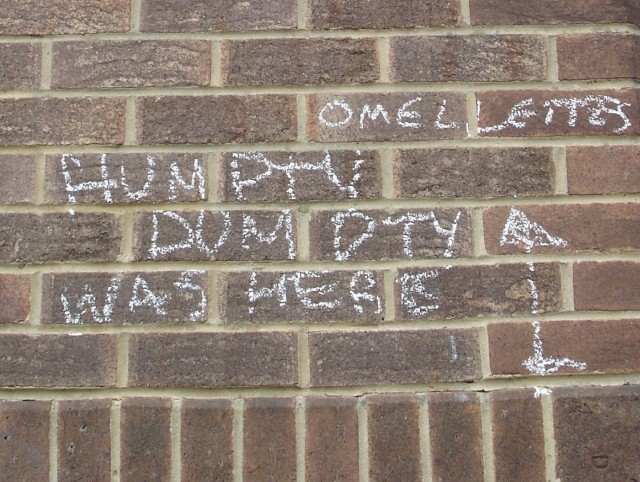 OMELLETTS
HUMPTY
DUMPTY
WAS HERE